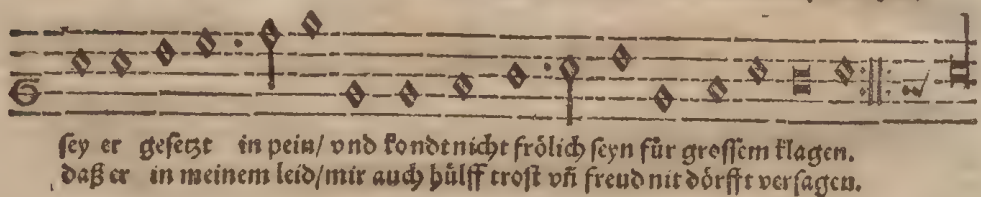 sey er gesetzt in pein/ vnd kondt nicht frölich seyn für grossem klagen.
daß er in meinem leid/mir auch hülff trost vñ freud nit dörfft versagen.